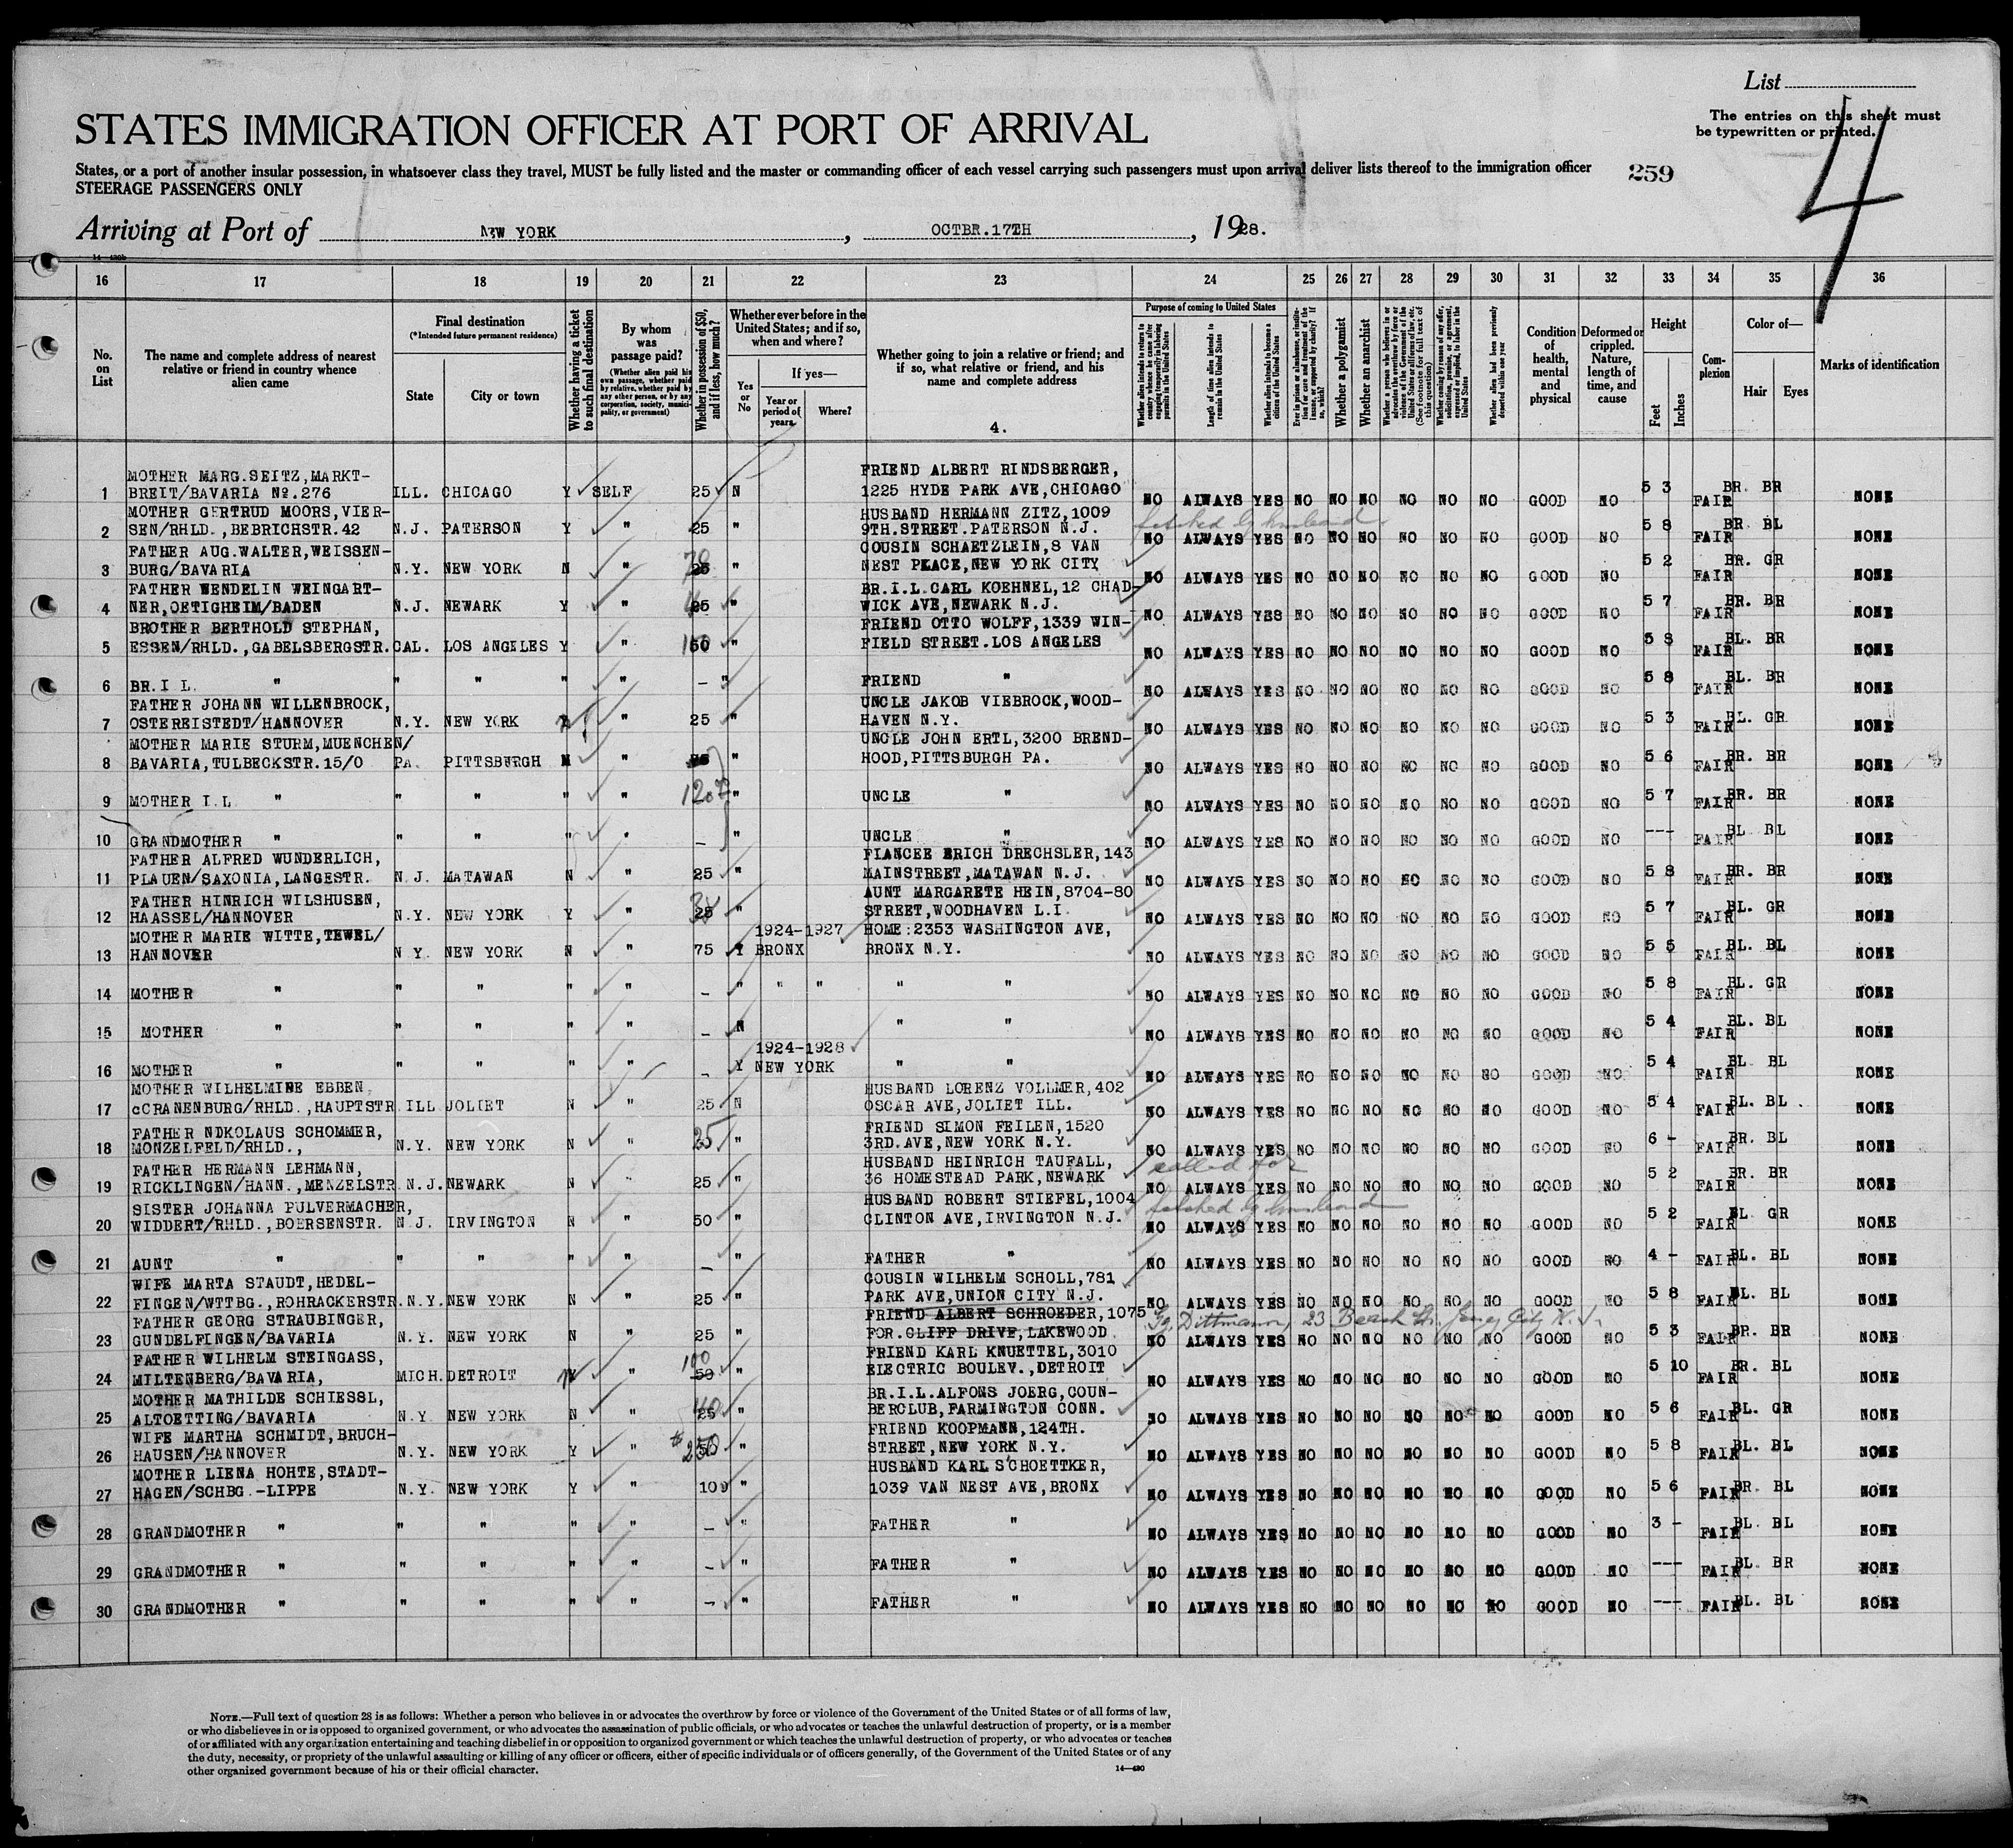 List
The entries on this sheet must
be typewritten or printed.
4
STATES IMMIGRATION OFFICER AT PORT OF ARRIVAL
States, or a port of another insular possession, in whatsoever class they travel, MUST be fully listed and the master or commanding officer of each vessel carrying such passengers must upon arrival deliver lists thereof to the immigration officer
STEERAGE PASSENGERS ONLY
259
Arriving at Port of NEW YORK, OCTBR.17TH, 1928.
14—430b
16 17 18 19 20 21 22 23 24 25 26 27 28 29 30 31 32 33 34 35 36
No. on List
The name and complete address of nearest relative or friend in country whence alien came
Final destination
(*Intended future permanent residence)
State City or town
Whether having a ticket to such final destination
By whom was passage paid?
(Whether alien paid his own passage, whether paid by relative, whether paid by any other person, or by any corporation, society, municipality, or government)
Whether in possession of $50, and if less, how much?
Whether ever before in the United States; and if so, when and where?
Yes or No
If yes—
Year or period of years
Where?
Whether going to join a relative or friend; and if so, what relative or friend, and his name and complete address
4.
Purpose of coming to United States
Whether alien intends to return to country whence he came after engaging temporarily in laboring pursuits in the United States
Length of time alien intends to remain in the United States
Whether alien intends to become a citizen of the United States
Ever in prison or almshouse, or institution for care and treatment of the insane, or supported by charity? If so, which?
Whether a polygamist
Whether an anarchist
(See footnote for full text of this question)
Whether coming by reason of any offer, solicitation, promise, or agreement, expressed or implied, to labor in the United States
Whether alien had been previously deported within one year
Condition of health, mental and physical
Deformed or crippled. Nature, length of time, and cause
Height
Feet Inches
Complexion
Color of—
Hair Eyes
Marks of identification
MOTHER MARG.SEITZ,MARKT- FRIEND ALBERT RINDSBERGER,
1 BREIT/BAVARIA No.276 ILL. CHICAGO Y SELF 25 N 1225 HYDE PARK AVE,CHICAGO NO ALWAYS YES NO NO NO NO NO NO GOOD NO 5 3 FAIR BR. BR NONE
MOTHER GERTRUD MOORS,VIER- HUSBAND HERMANN ZITZ,1009 fetched by husband
2 SEN/RHLD.,BEBRICHSTR.42 N.J. PATERSON Y " 25 " 9TH.STREET.PATERSON N.J. NO ALWAYS YES NO NO NO NO NO NO GOOD NO 5 8 FAIR BR BL NONE
FATHER AUG.WALTER,WEISSEN- COUSIN SCHAETZLEIN,8 VAN
3 BURG/BAVARIA N.Y. NEW YORK N " 25 " NEST PLACE,NEW YORK CITY NO ALWAYS YES NO NO NO NO NO NO GOOD NO 5 2 FAIR BR. GR NONE
FATHER WENDELIN WEINGART- BR.I.L.CARL KOEHNEL,12 CHAD-
4 NER,OETIGHEIM/BADEN N.J. NEWARK Y " 25 " WICK AVE,NEWARK N.J. NO ALWAYS YES NO NO NO NO NO NO GOOD NO 5 7 FAIR BR. BR NONE
BROTHER BERTHOLD STEPHAN, FRIEND OTTO WOLFF,1339 WIN-
5 ESSEN/RHLD.,GABELSBERGSTR. CAL. LOS ANGELES Y " 50 " FIELD STREET.LOS ANGELES NO ALWAYS YES NO NO NO NO NO NO GOOD NO 5 8 FAIR BL. BR NONE
6 BR.I L. " " " " " - " FRIEND " NO ALWAYS YES NO NO NO NO NO NO GOOD NO 5 8 FAIR BL. BR NONE
FATHER JOHANN WILLENBROCK, UNCLE JAKOB VIEBROCK,WOOD-
7 OSTEREISTEDT/HANNOVER N.Y. NEW YORK " 25 " HAVEN N.Y. NO ALWAYS YES NO NO NO NO NO NO GOOD NO 5 3 FAIR BL. GR NONE
MOTHER MARIE STURM,MUENCHEN/ UNCLE JOHN ERTL,3200 BREND-
8 BAVARIA,TULBECKSTR.15/0 PA. PITTSBURGH N " " HOOD,PITTSBURGH PA. NO ALWAYS YES NO NO NO NO NO NO GOOD NO 5 6 FAIR BR. BR NONE
9 MOTHER I.L " " " " " 120 " UNCLE " NO ALWAYS YES NO NO NO NO NO NO GOOD NO 5 7 FAIR BR. BR NONE
10 GRANDMOTHER " " " " " - " UNCLE " NO ALWAYS YES NO NO NO NO NO NO GOOD NO --- FAIR BL BL NONE
FATHER ALFRED WUNDERLICH, FIANCEE ERICH DRECHSLER,143
11 PLAUEN/SAXONIA,LANGESTR. N.J. MATAWAN N " 25 " MAINSTREET,MATAWAN N.J. NO ALWAYS YES NO NO NO NO NO NO GOOD NO 5 8 FAIR BR. BR NONE
FATHER HINRICH WILSHUSEN, AUNT MARGARETE HEIN,8704-80
12 HAASSEL/HANNOVER N.Y. NEW YORK Y " 25 " STREET,WOODHAVEN L.I. NO ALWAYS YES NO NO NO NO NO NO GOOD NO 5 7 FAIR BL. GR NONE
MOTHER MARIE WITTE,TEWEL/ 1924-1927 HOME:2353 WASHINGTON AVE,
13 HANNOVER N Y. NEW YORK N " 75 Y BRONX BRONX N.Y. NO ALWAYS YES NO NO NO NO NO NO GOOD NO 5 5 FAIR BL. BL NONE
14 MOTHER " " " " " - " " " " " NO ALWAYS YES NO NO NO NO NO NO GOOD NO 5 8 FAIR BL. GR NONE
15 MOTHER " " " " " - N " " NO ALWAYS YES NO NO NO NO NO NO GOOD NO 5 4 FAIR BL. BL NONE
1924-1928
16 MOTHER " " " " " - Y NEW YORK " " NO ALWAYS YES NO NO NO NO NO NO GOOD NO 5 4 FAIR BL BL NONE
MOTHER WILHELMINE EBBEN, HUSBAND LORENZ VOLLMER,402
17 cCRANENBURG/RHLD.,HAUPTSTR ILL JOLIET N " 25 N OSCAR AVE,JOLIET ILL. NO ALWAYS YES NO NO NO NO NO NO GOOD NO 5 4 FAIR BL. BL NONE
FATHER NDKOLAUS SCHOMMER, FRIEND SIMON FEILEN,1520
18 MONZELFELD/RHLD., N.Y. NEW YORK N " 25 " 3RD.AVE,NEW YORK N.Y. NO ALWAYS YES NO NO NO NO NO NO GOOD NO 6 - FAIR BR. BL NONE
FATHER HERMANN LEHMANN, HUSBAND HEINRICH TAUFALL, called for
19 RICKLINGEN/HANN.,MENZELSTR N.J. NEWARK N " 25 " 36 HOMESTEAD PARK,NEWARK NO ALWAYS YES NO NO NO NO NO NO GOOD NO 5 2 FAIR BR. BR NONE
SISTER JOHANNA PULVERMACHER, HUSBAND ROBERT STIEFEL,1004 fetched by husband
20 WIDDERT/RHLD.,BOERSENSTR. N.J. IRVINGTON N " 50 " CLINTON AVE,IRVINGTON N.J. NO ALWAYS YES NO NO NO NO NO NO GOOD NO 5 2 FAIR BL GR NONE
21 AUNT " " " " " - " FATHER " NO ALWAYS YES NO NO NO NO NO NO GOOD NO 4 - FAIR BL. BL NONE
WIFE MARTA STAUDT,HEDEL- COUSIN WILHELM SCHOLL,781
22 FINGEN/WTTBG.,ROHRACKERSTR. N.Y. NEW YORK N " 25 " PARK AVE,UNION CITY N.J. NO ALWAYS YES NO NO NO NO NO NO GOOD NO 5 8 FAIR BL. BL NONE
FATHER GEORG STRAUBINGER, FRIEND ALBERT SCHROEDER,1075 Dittmann, 23 Beach St. Jersey City N.J.
23 GUNDELFINGEN/BAVARIA N.Y. NEW YORK N " 25 " FOR.CLIFF DRIVE,LAKEWOOD NO ALWAYS YES NO NO NO NO NO NO GOOD NO 5 3 FAIR BR. BR NONE
FATHER WILHELM STEINGASS, 100 FRIEND KARL KNUETTEL,3010
24 MILTENBERG/BAVARIA, MICH. DETROIT N " 50 " ELECTRIC BOULEV.,DETROIT NO ALWAYS YES NO NO NO NO NO NO GOOD NO 5 10 FAIR BR. BL NONE
MOTHER MATHILDE SCHIESSL, BR.I.L.ALFONS JOERG,COUN-
25 ALTOETTING/BAVARIA N.Y. NEW YORK N " 25 " BERCLUB,FARMINGTON CONN. NO ALWAYS YES NO NO NO NO NO NO GOOD NO 5 6 FAIR BL. GR NONE
WIFE MARTHA SCHMIDT,BRUCH- FRIEND KOOPMANN,124TH.
26 HAUSEN/HANNOVER N.Y. NEW YORK Y " $250 " STREET,NEW YORK N.Y. NO ALWAYS YES NO NO NO NO NO NO GOOD NO 5 8 FAIR BL. BL NONE
MOTHER LIENA HOHTE,STADT- HUSBAND KARL SCHOETTKER,
27 HAGEN/SCHBG.-LIPPE N.Y. NEW YORK Y " 100 " 1039 VAN NEST AVE,BRONX NO ALWAYS YES NO NO NO NO NO NO GOOD NO 5 6 FAIR BR. BL NONE
28 GRANDMOTHER " " " " " - " FATHER " NO ALWAYS YES NO NO NO NO NO NO GOOD NO 3 - FAIR BL. BL NONE
29 GRANDMOTHER " " " " " - " FATHER " NO ALWAYS YES NO NO NO NO NO NO GOOD NO --- FAIR BL. BR NONE
30 GRANDMOTHER " " " " " - " FATHER " NO ALWAYS YES NO NO NO NO NO NO GOOD NO --- FAIR BL. BL NONE
NOTE.—Full text of question 28 is as follows: Whether a person who believes in or advocates the overthrow by force or violence of the Government of the United States or of all forms of law,
or who disbelieves in or is opposed to organized government, or who advocates the assassination of public officials, or who advocates or teaches the unlawful destruction of property, or is a member
of or affiliated with any organization entertaining and teaching disbelief in or opposition to organized government or which teaches the unlawful destruction of property, or who advocates or teaches
the duty, necessity, or propriety of the unlawful assaulting or killing of any officer or officers, either of specific individuals or of officers generally, of the Government of the United States or of any
other organized government because of his or their official character.
14—430